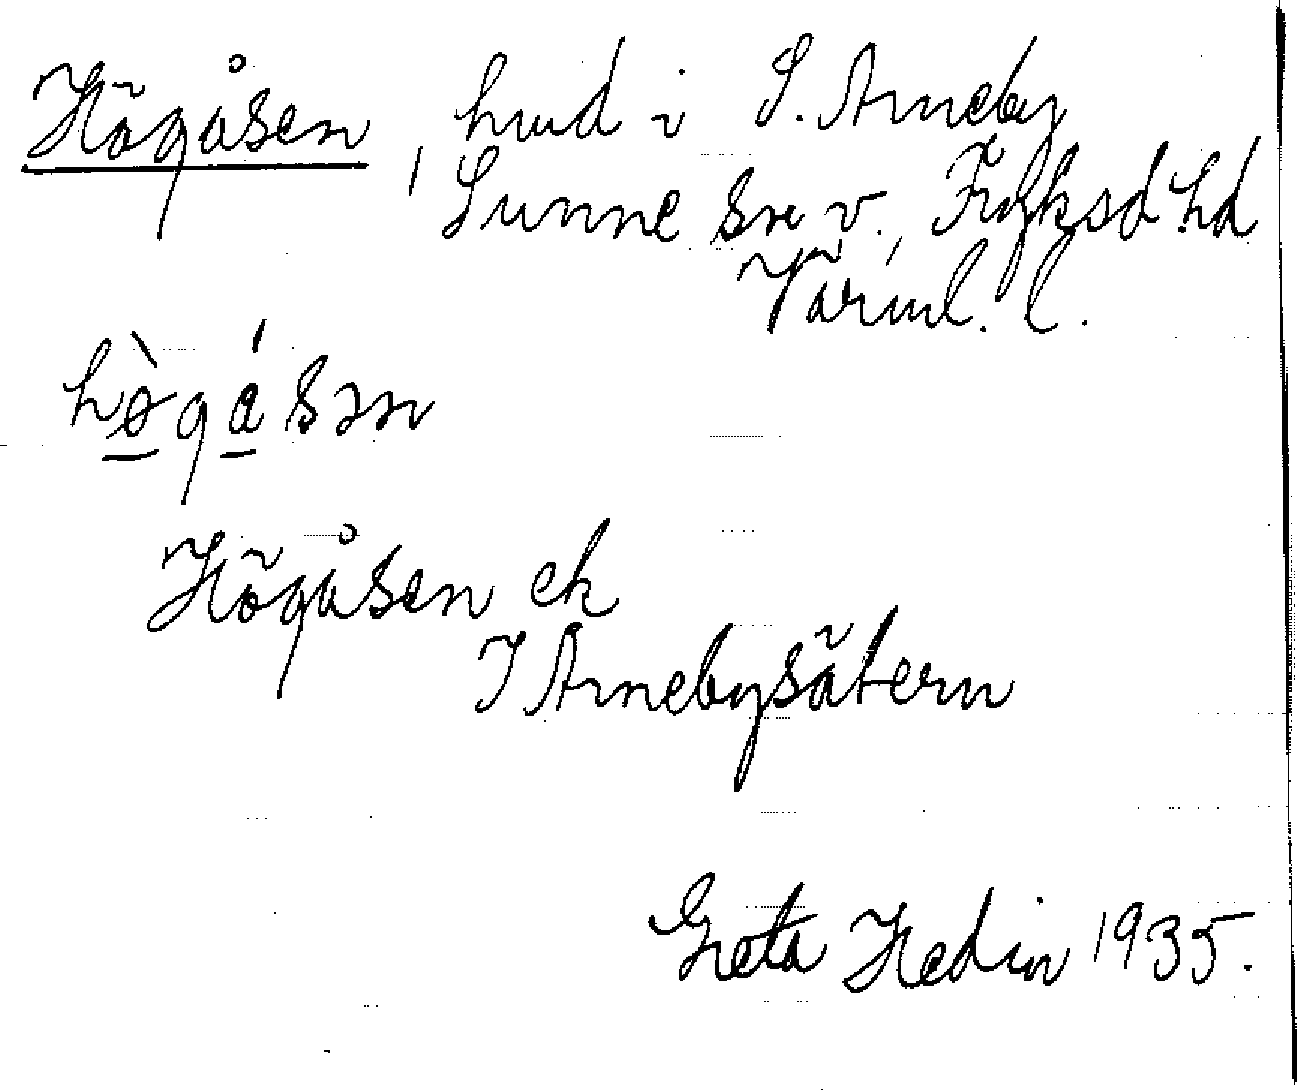 Högåsen, hmd i S. Arneby
Sunne sn v., Fryksd hd
Värml. l.
hø̀gásən
Högåsen ek
I Arnebysätern
Greta Hedin 1935.